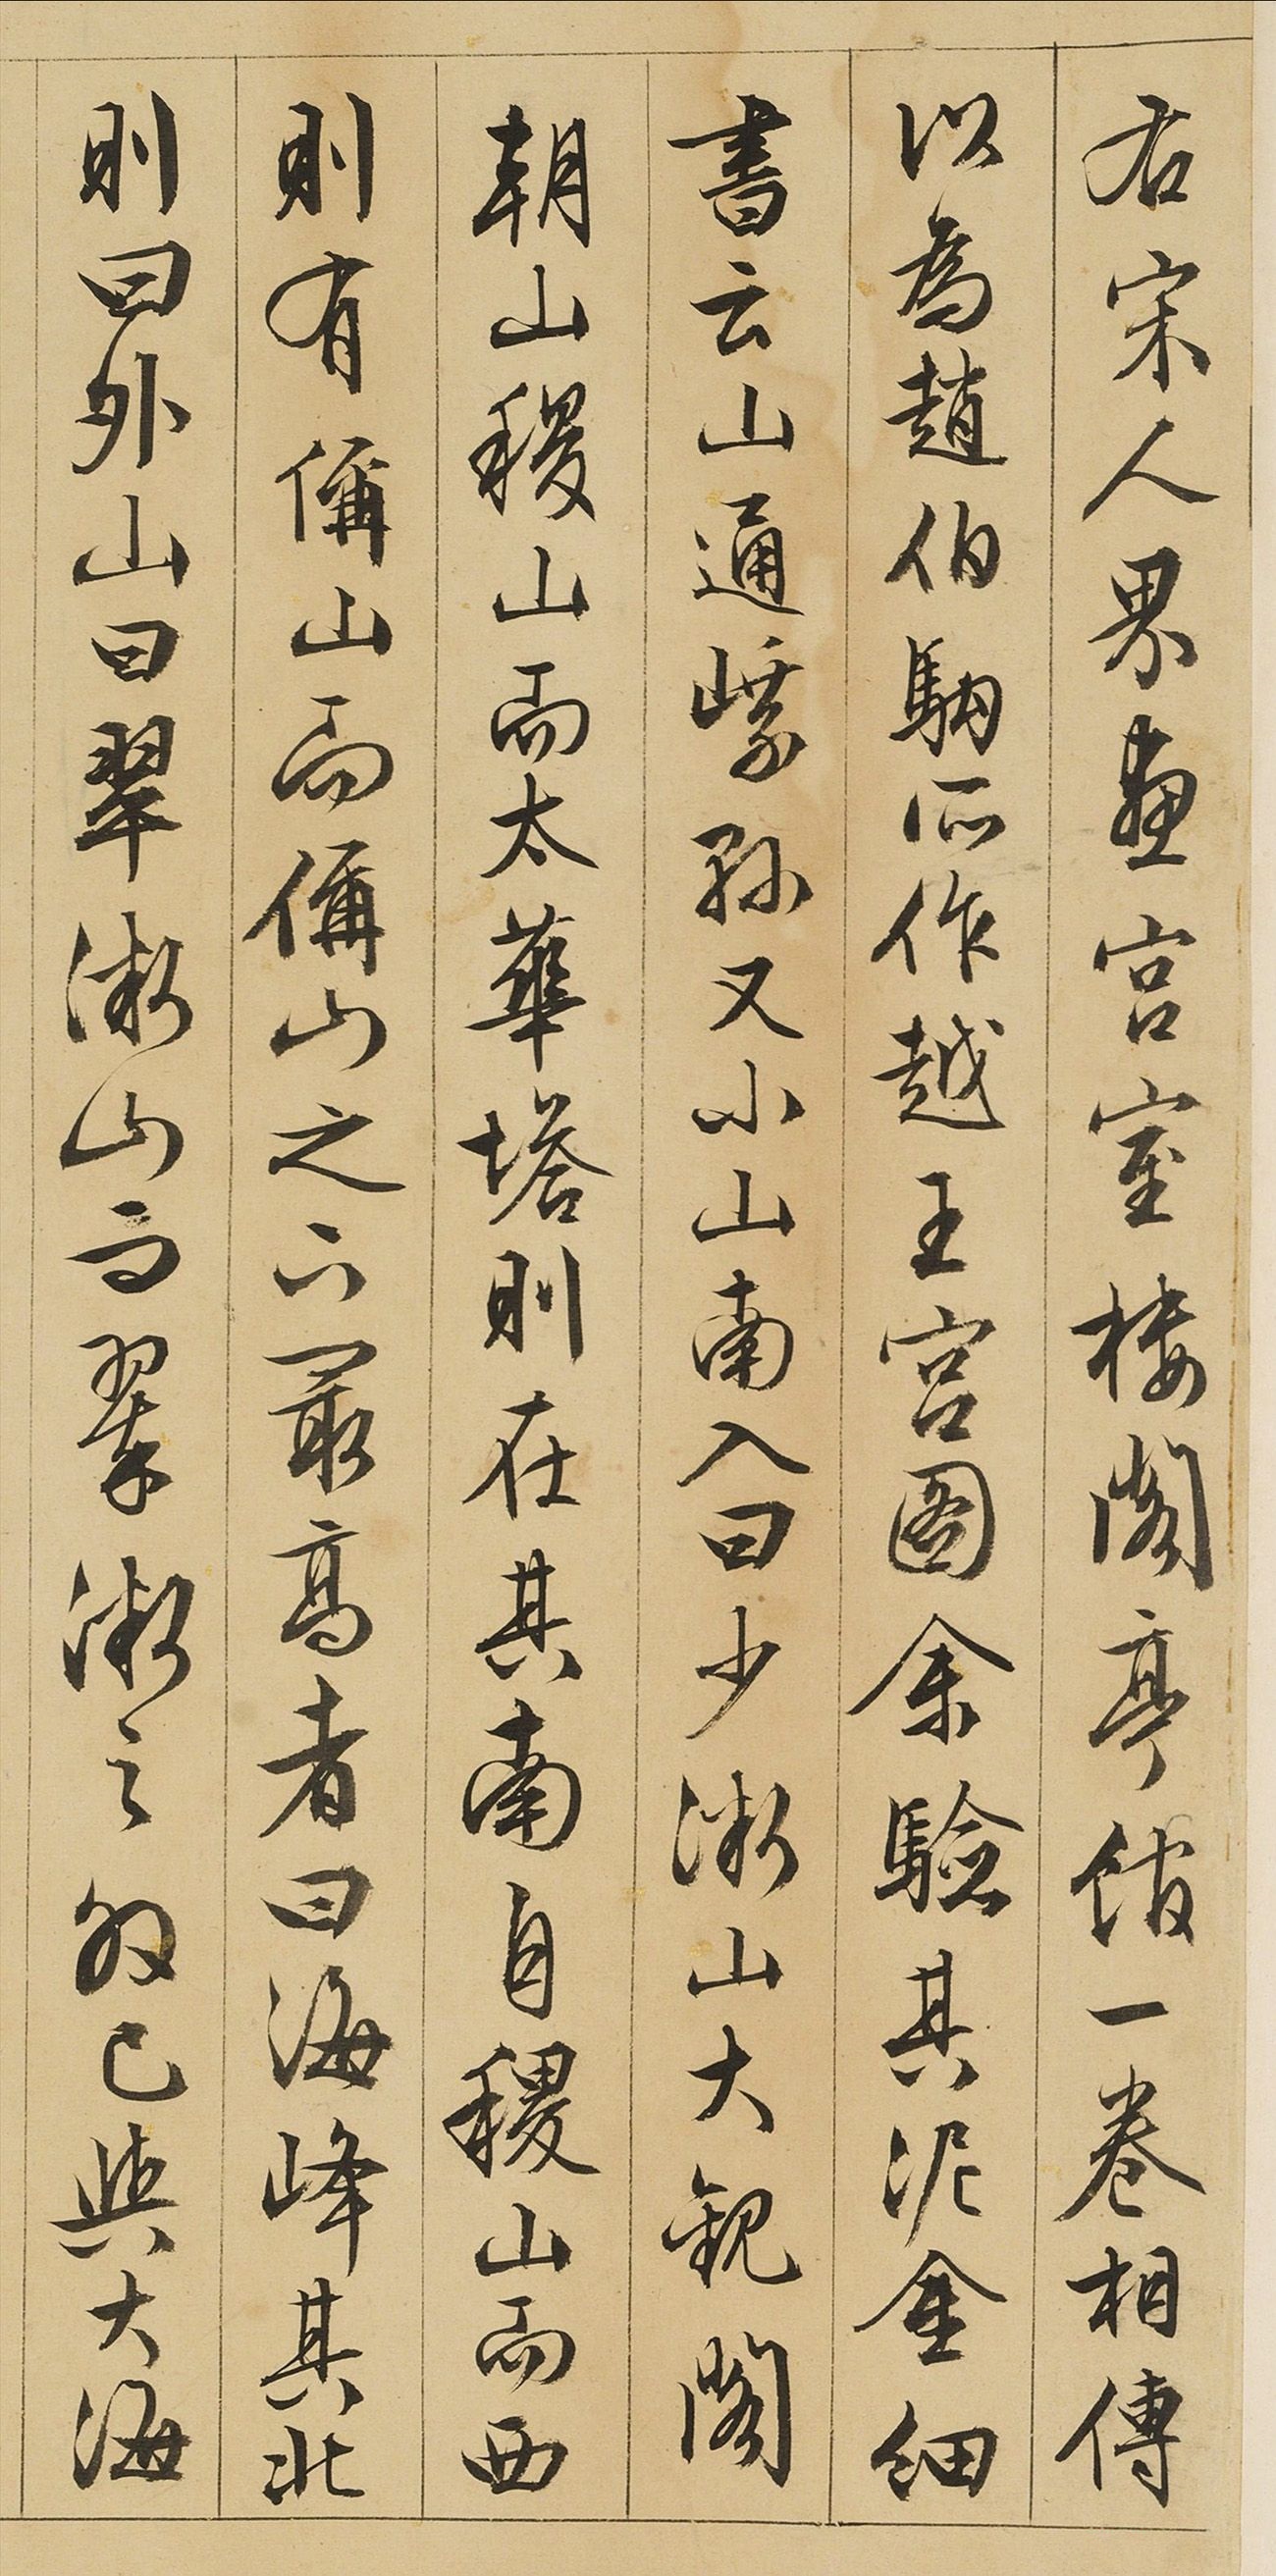 右宋人界畫宮室樓閣亭館一卷相傳
以為趙伯駒所作越王宮圖余驗其泥金細
書云山通孫又小山南入曰少微山大觀閣
朝山稷山而太華塔則在其南自稷山而西
則有偁山而偁山之最高者曰海峰其北
則曰外山曰翠微山而翠微之已與大海